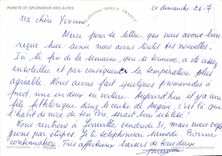 PURETÉ ET SPLENDEUR DES ALPES
ce dimanche 31-7
Ma chère Yvonne,
Merci pour ta lettre que nous avons bien
reçue hier ainsi nous avons toutes tes nouvelles.
Ici la fin de la semaine, que se termine, a été
ensoleillée et par conséquent la température plus
agréable. Nous avons fait quelques promenades à
pied une en voiture. Aujourd'hui il y a une
fête folklorique dans le centre de
l'habit de noce de ton Père serait bien utile!
Nous rentrons à vendredi 31, mais nous
par étapes. Je te téléphonerai samedi. Bonne
continuation. Très affectueux baisers de tous deux